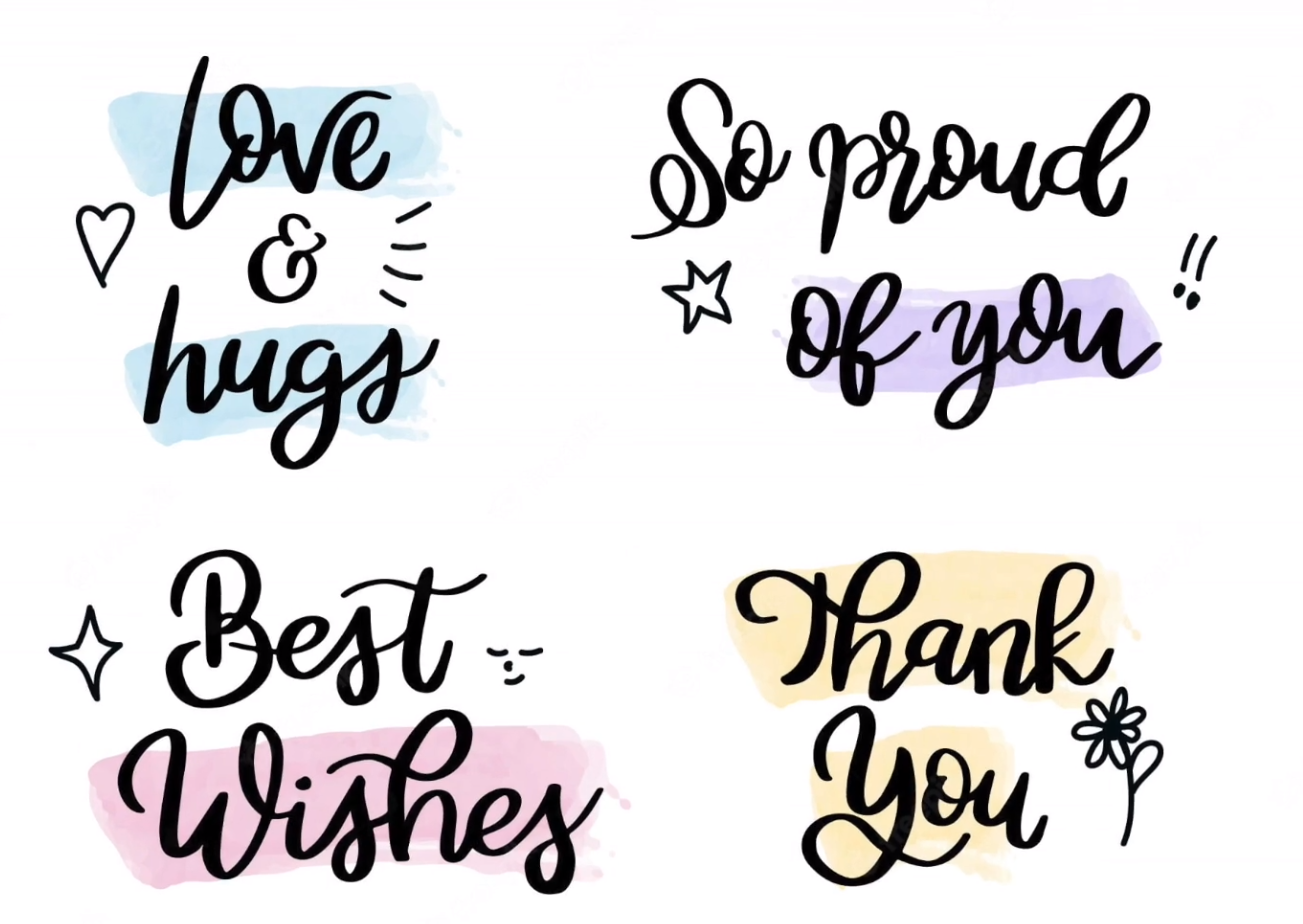 love
&
hugs
So proud
of you
Best
Wishes
Thank
You